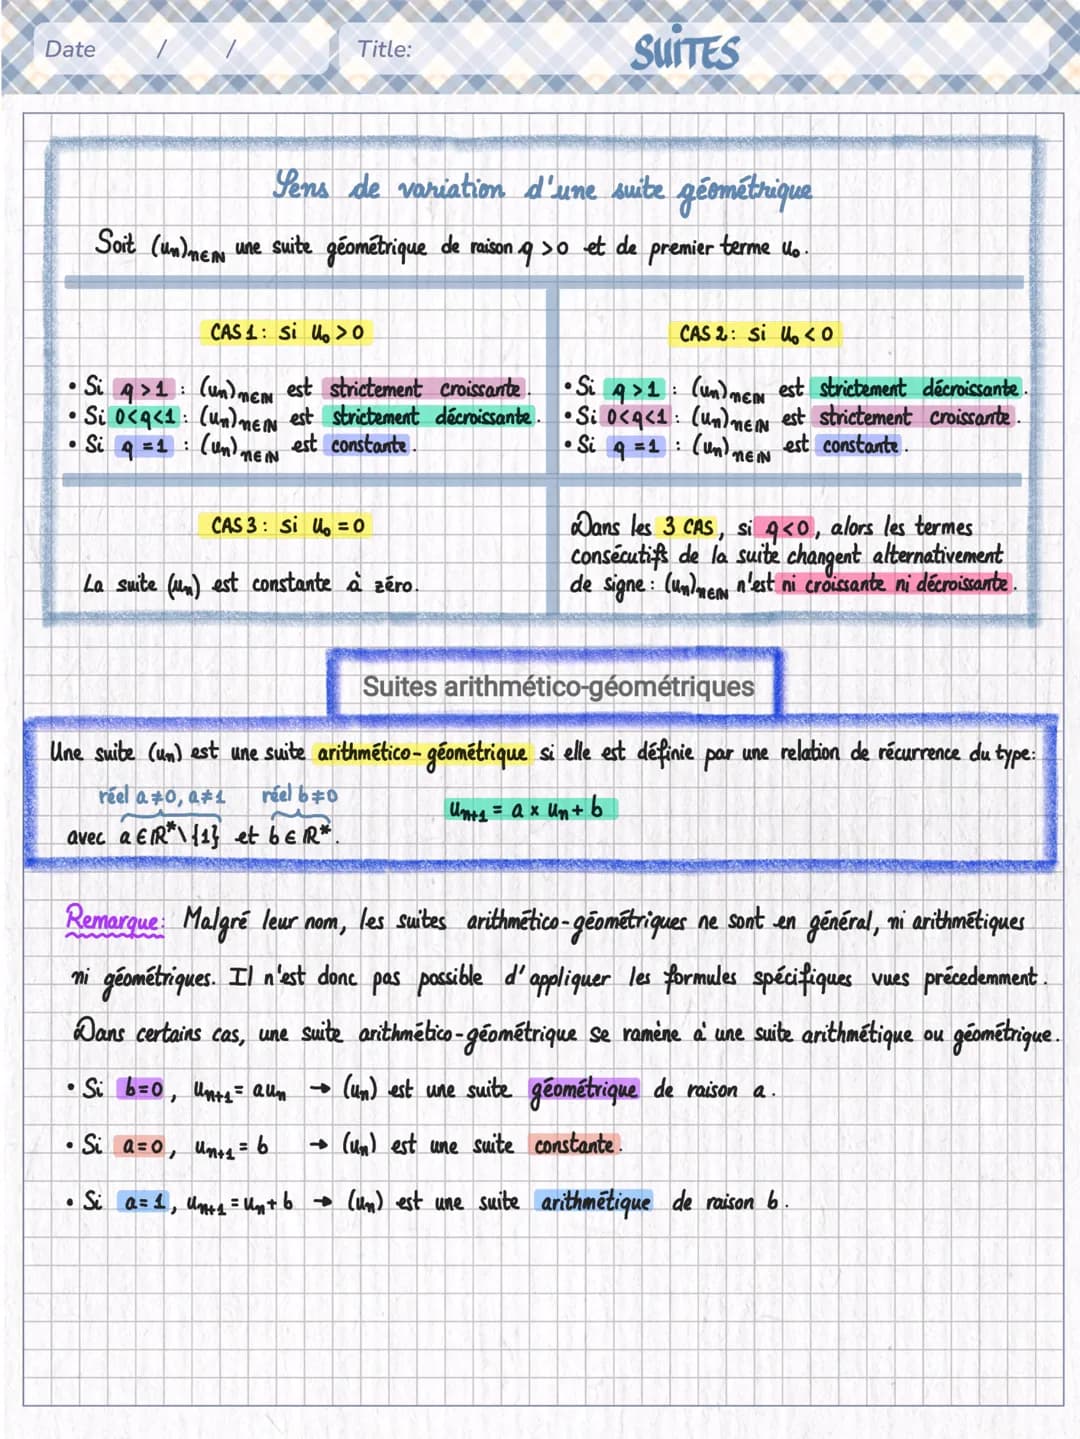 Date / / Title: SUITES
Sens de variation d'une suite géométrique
Soit (un)n∈ℕ une suite géométrique de raison q > 0 et de premier terme u₀.
CAS 1 : si u₀ > 0
• Si q > 1 : (un)n∈ℕ est strictement croissante.
• Si 0<q<1 : (un)n∈ℕ est strictement décroissante.
• Si q = 1 : (un)n∈ℕ est constante.
CAS 2 : si u₀ < 0
• Si q > 1 : (un)n∈ℕ est strictement décroissante.
• Si 0<q<1 : (un)n∈ℕ est strictement croissante.
• Si q = 1 : (un)n∈ℕ est constante.
CAS 3 : si u₀ = 0
La suite (un) est constante à zéro.
Dans les 3 CAS, si q<0, alors les termes
consécutifs de la suite changent alternativement
de signe : (un)n∈ℕ n'est ni croissante ni décroissante.
Suites arithmético-géométriques
Une suite (un) est une suite arithmético-géométrique si elle est définie par une relation de récurrence du type:
réel a≠0, a≠1 réel b≠0
un+1 = a × un + b
avec a ∈ ℝ*\{1} et b ∈ ℝ*.
Remarque: Malgré leur nom, les suites arithmético-géométriques ne sont en général, ni arithmétiques
ni géométriques. Il n'est donc pas possible d'appliquer les formules spécifiques vues précedemment.
Dans certains cas, une suite arithmético-géométrique se ramène à une suite arithmétique ou géométrique.
• Si b=0, un+1 = aun → (un) est une suite géométrique de raison a.
• Si a=0, un+1 = b → (un) est une suite constante.
• Si a=1, un+1 = un + b → (un) est une suite arithmétique de raison b.